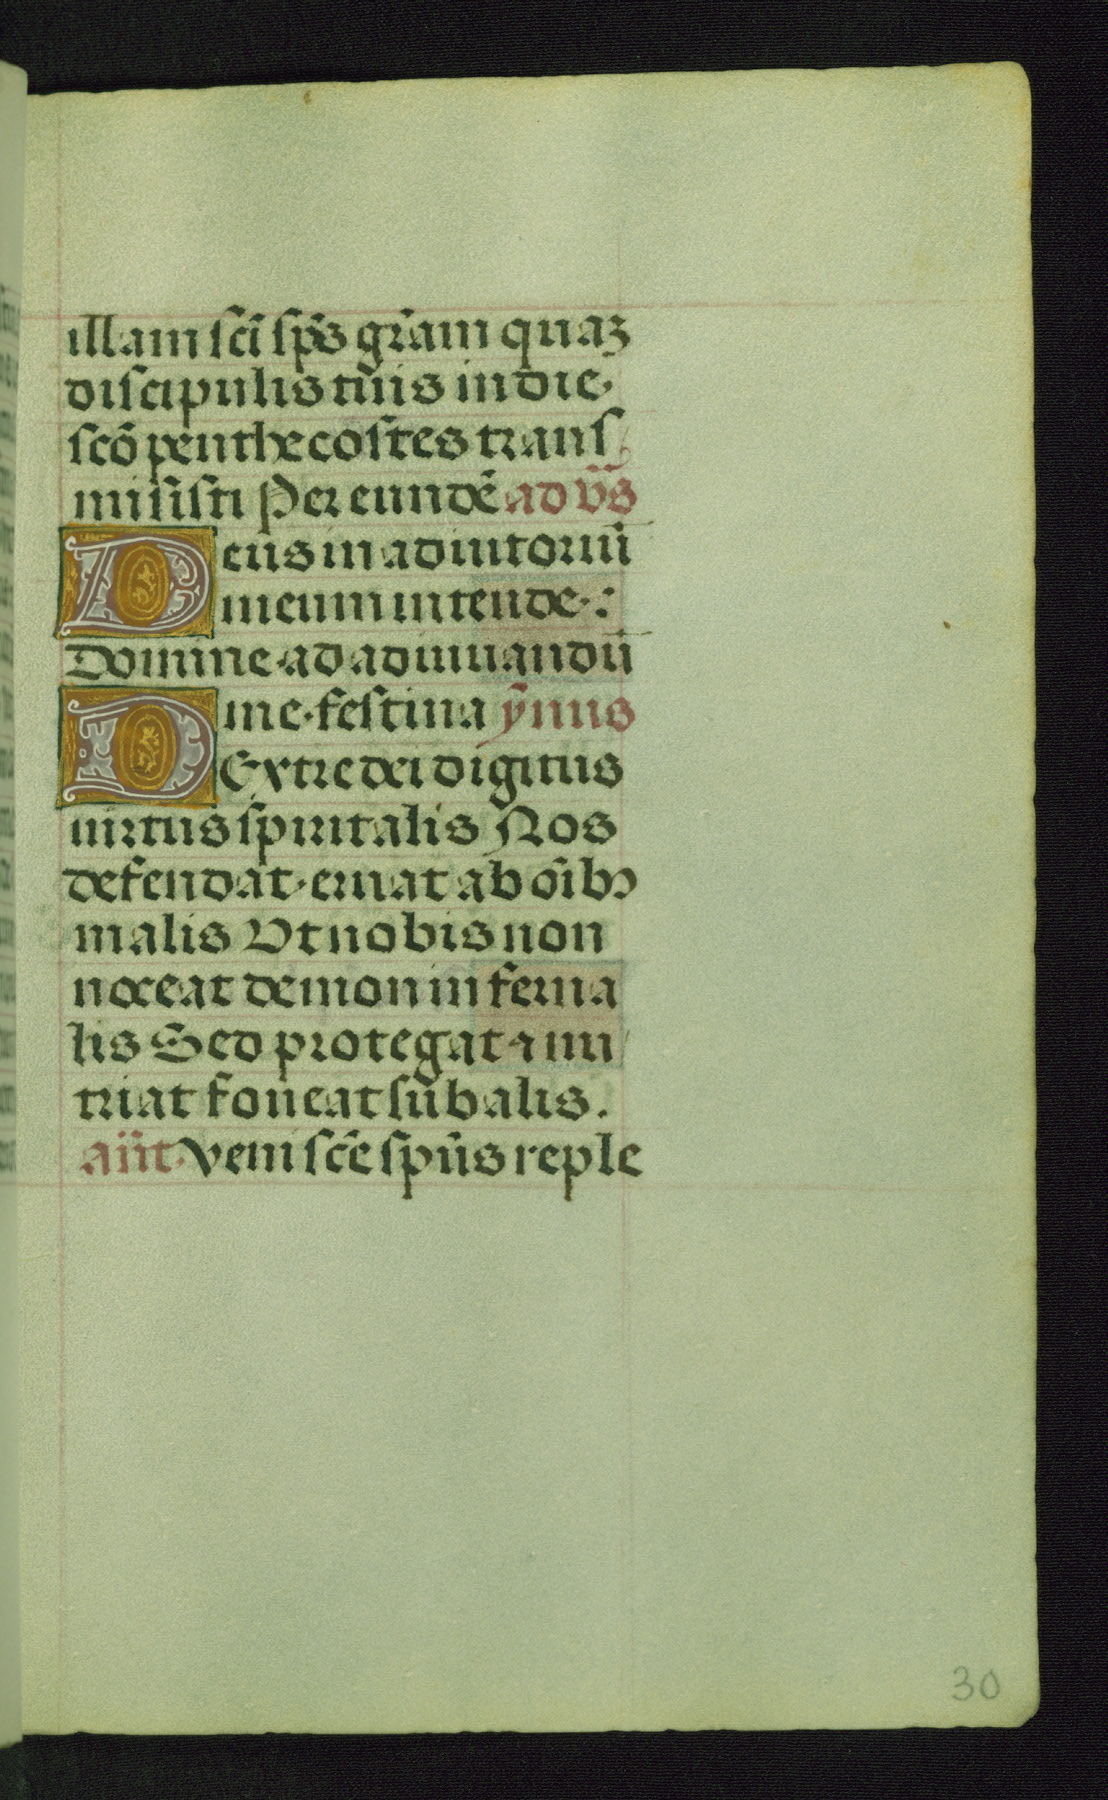 illam sci̅ sp̅s gr̅am quaꝫ
discipulis tuis in die
sc̅o penthecostes trans
misisti Per eunde̅ ad v̅s
Deus in adiutoriu̅
meum intende :
Domine ad adiuuandu̅
me festina ẏmnus
Dextre dei digitus
uirtus spiritalis Nos
defendat eruat ab oi̅bꝰ
malis Vt nobis non
noceat demon inferna
lis Sed protegat ⁊ nu
triat foueat sub alis.
an̅t. Veni sc̅e sp̅us reple
30